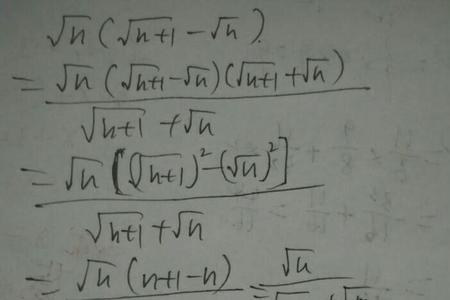 √n (√n+1 - √n).
= √n (√n+1 - √n)(√n+1 + √n)
√n+1 + √n
= √n [(√n+1)² - (√n)²]
√n+1 + √n
= √n (n+1-n) = √n